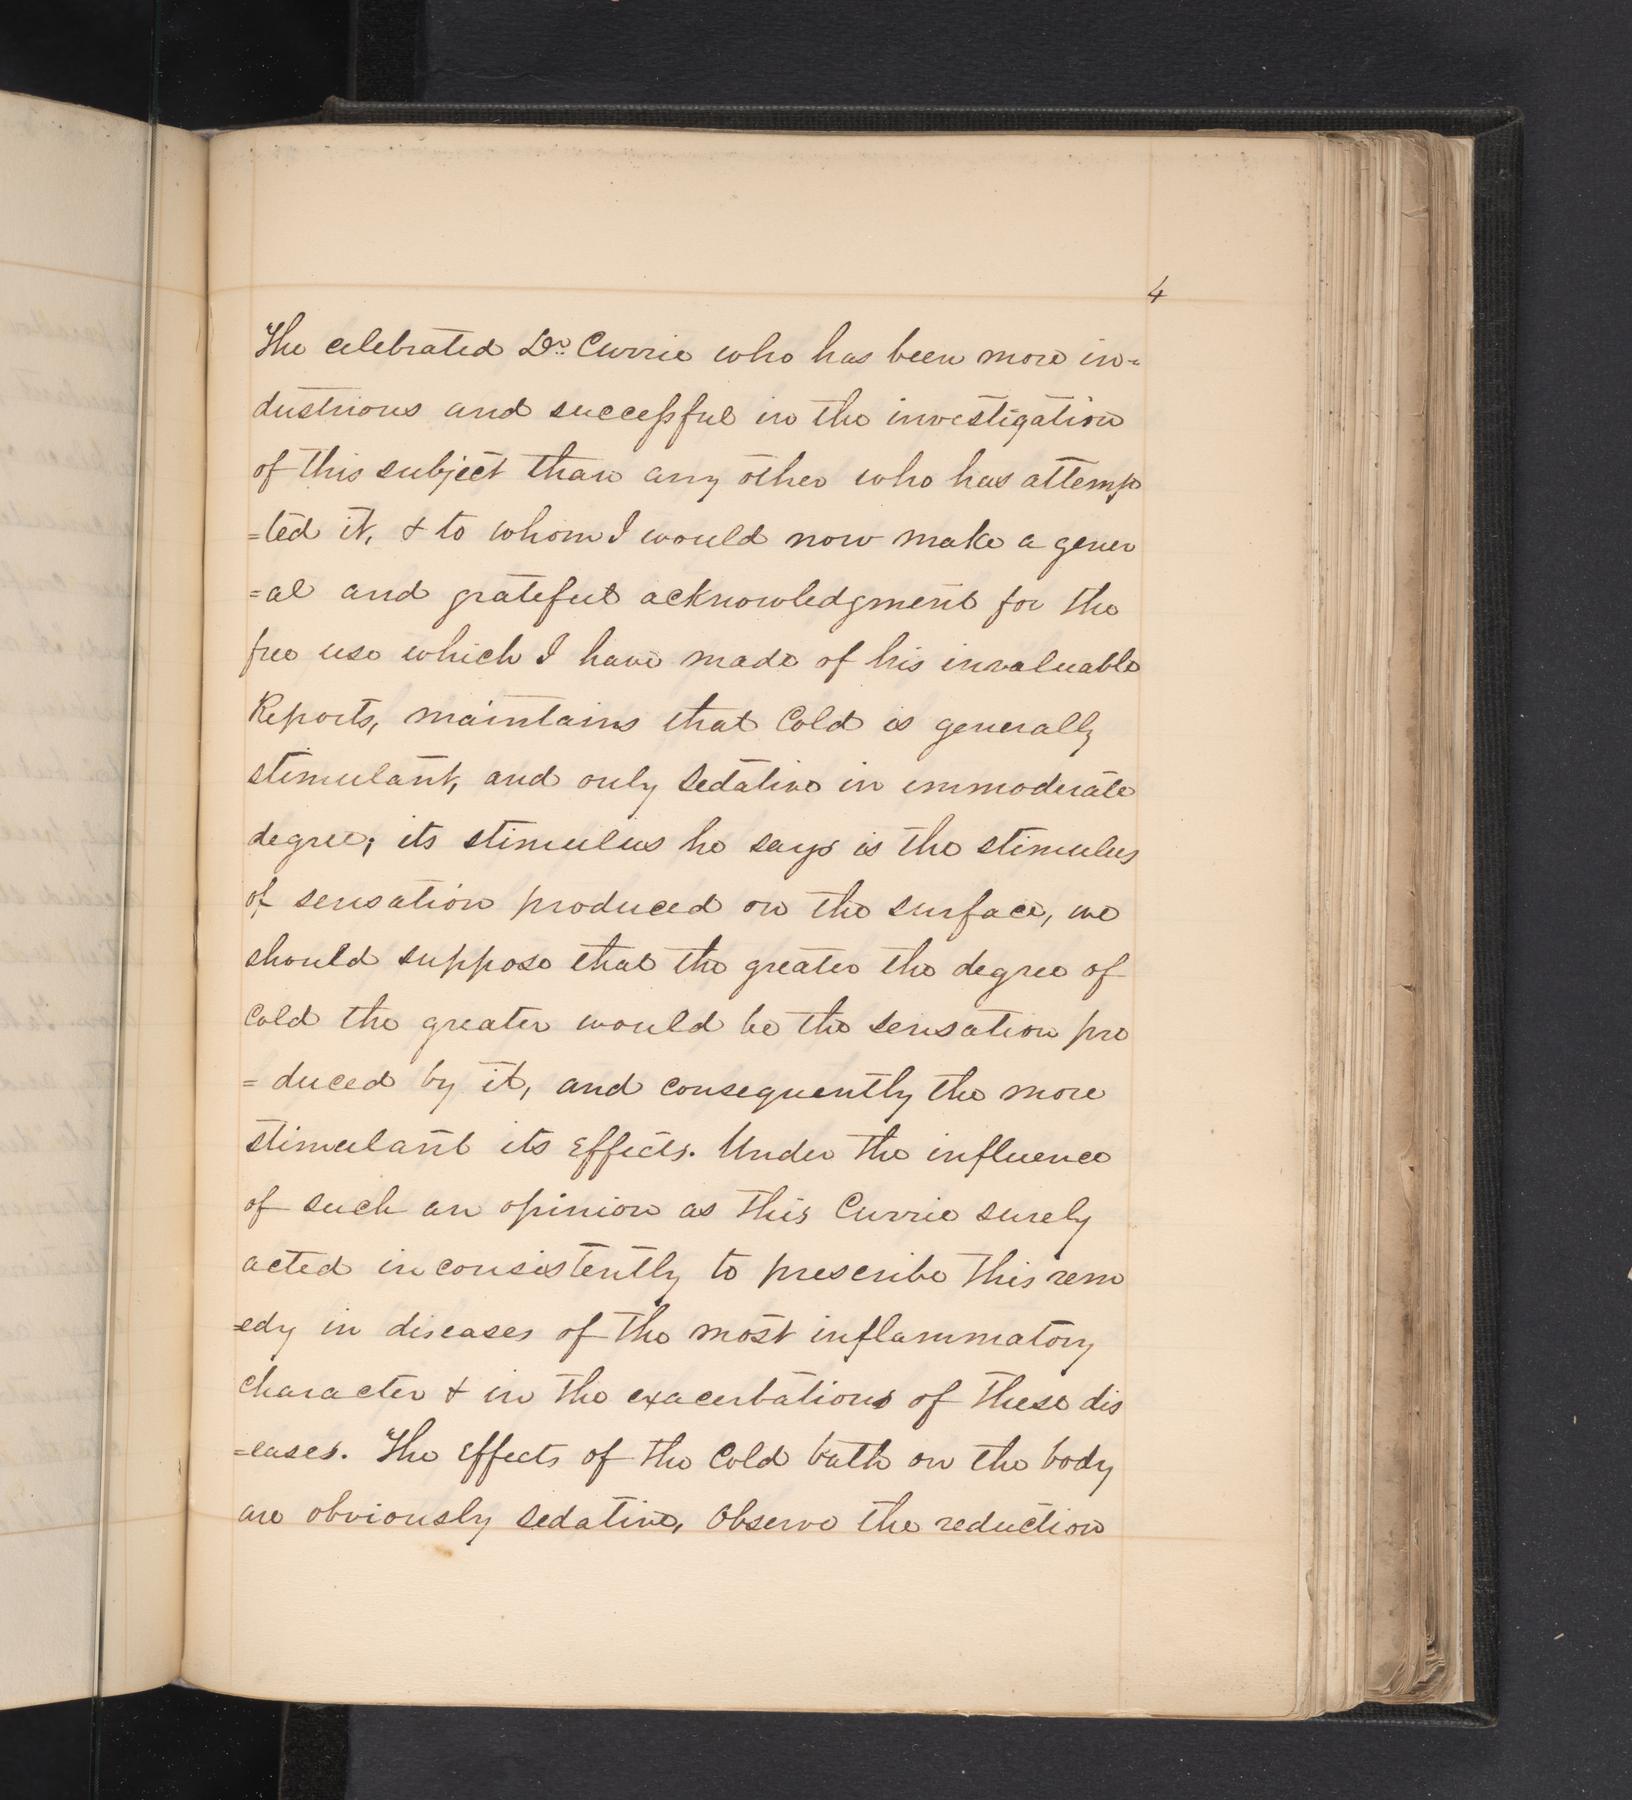 4
The celebrated Dr. Currie who has been more in=
dustrious and successful in the investigation
of this subject than any other who has attemp
=ted it, & to whom I would now make a gener
=al and grateful acknowledgment for the
free use which I have made of his invaluable
Reports, maintains that Cold is generally
stimulant, and only Sedative in immoderate
degree; its stimulus he says is the stimulus
of sensation produced on the surface, we
should suppose that the greater the degree of
Cold the greater would be the sensation pro
=duced by it, and consequently the more
stimulant its Effects. Under the influence
of such an opinion as this Currie surely
acted inconsistently to prescribe this rem
=edy in diseases of the most inflammatory
Character & in the exacerbations of these dis
=eases. The Effects of the Cold bath on the body
are obviously sedative, Observe the reduction